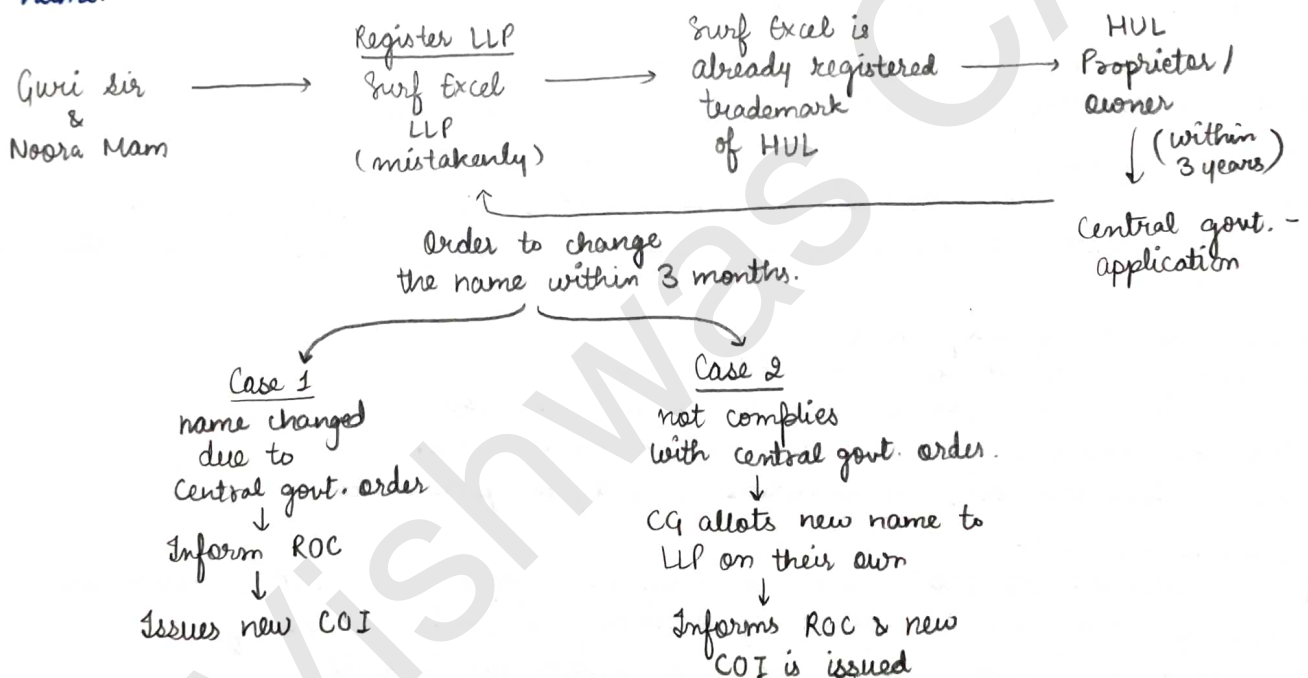 name.
Guri Sir
&
Noora Mam
Register LLP
Surf Excel
LLP
(mistakenly)
Surf Excel is
already registered
trademark
of HUL
HUL
Proprietor /
owner
(within
3 years)
Central govt. -
application
Order to change
the name within 3 months.
Case 1
name changed
due to
Central govt. order
Inform ROC
Issues new COI
Case 2
not complies
with central govt. order.
CG allots new name to
LLP on their own
Informs ROC & new
COI is issued
Vishwas C